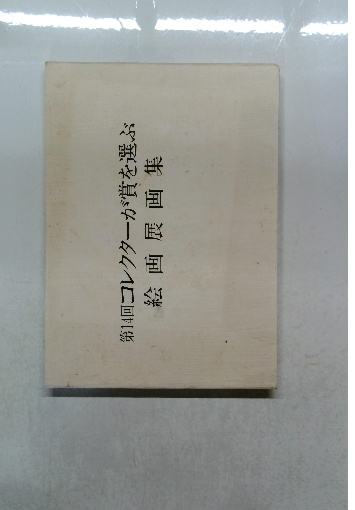 第14回コレクターが賞を選ぶ
絵画展画集